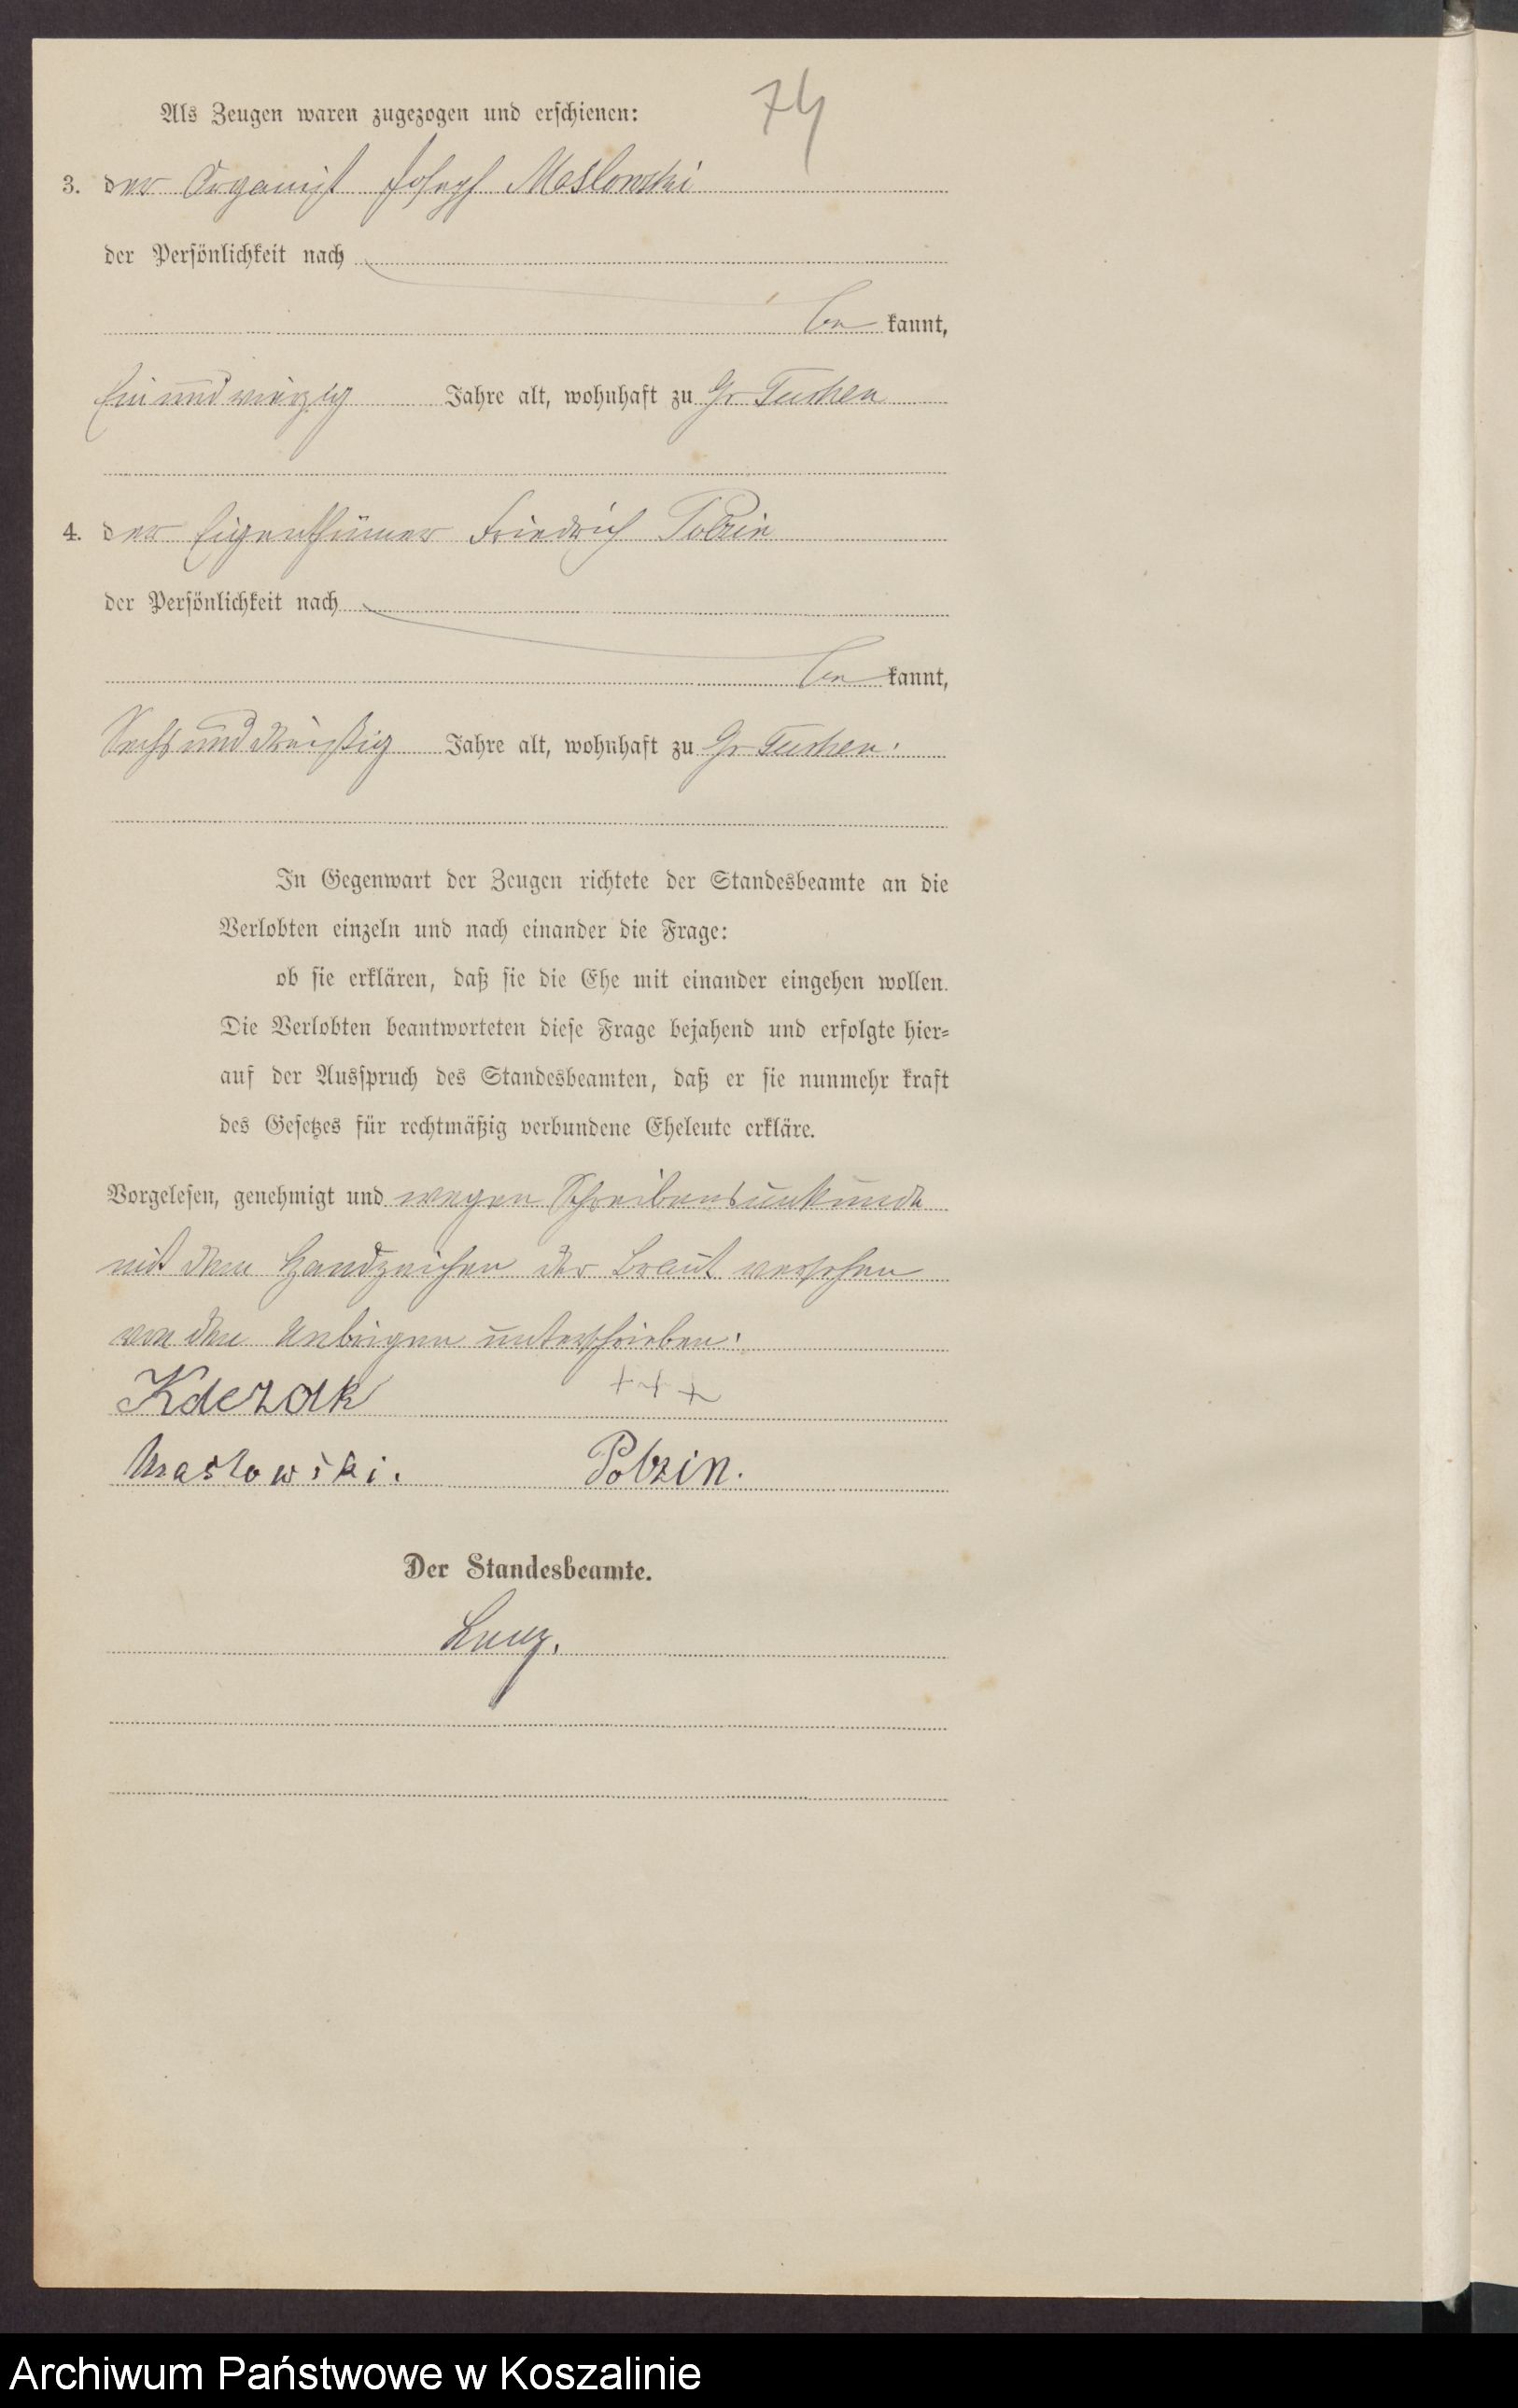 74
Als Zeugen waren zugezogen und erschienen:
3. der Organist Joseph Maslowski
der Persönlichkeit nach
be kannt,
Ein und vierzig Jahre alt, wohnhaft zu Gr Tuchen
4. der Eigenthümer Friedrich Polzin
der Persönlichkeit nach
be kannt,
Sechs und dreißig Jahre alt, wohnhaft zu Gr Tuchen.
In Gegenwart der Zeugen richtete der Standesbeamte an die
Verlobten einzeln und nach einander die Frage:
ob sie erklären, daß sie die Ehe mit einander eingehen wollen.
Die Verlobten beantworteten diese Frage bejahend und erfolgte hier-
auf der Ausspruch des Standesbeamten, daß er sie nunmehr kraft
des Gesetzes für rechtmäßig verbundene Eheleute erkläre.
Vorgelesen, genehmigt und wegen Schreibensunkunde
mit dem Handzeichen der Braut versehen
von den Uebrigen unterschrieben.
Kdezak +++
Maslowski. Polzin.
Der Standesbeamte.
Archiwum Państwowe w Koszalinie